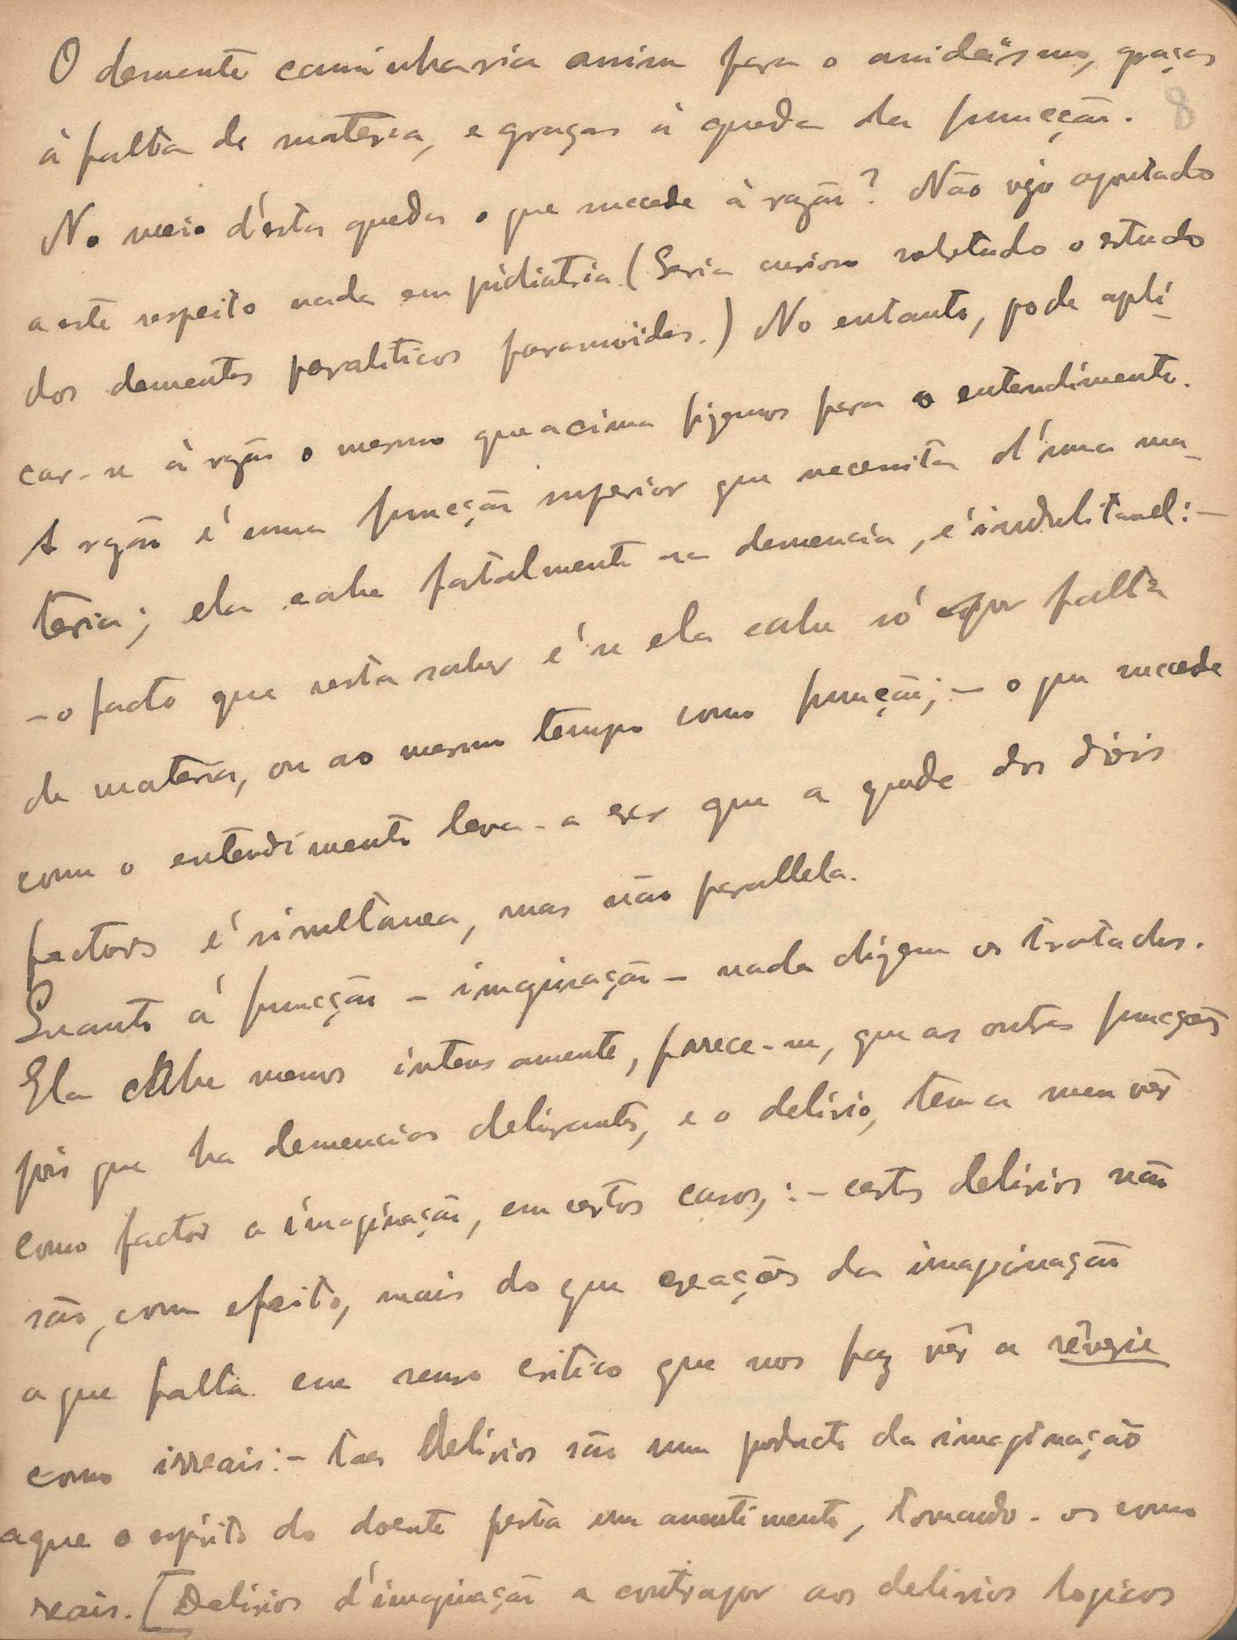 O demente caminharia assim para o anideismo, graças
8
à falta de materia, e graças à queda da funcção.
No meio d'estas quedas o que succede à razão? Não vejo apontado
a este respeito nada em psichiatria (Seria curioso sobretudo o estudo
dos dementes paraliticos paranoides.) No entanto, pode apli-
car-se à razão o mesmo que acima fizemos para o entendimento.
A razão é uma funcção superior que necessita d'uma ma-
teria; ela cahe fatalmente na demencia, é indubitavel:-
- o facto que resta saber é se ela cahe só por falta
de materia, ou ao mesmo tempo como funcção; - o que succede
com o entendimento leva-a crer que a queda dos dois
factores é simultanea, mas não parallela.
Quanto á funcção - imaginação - nada dizem os tratados.
Ela cahe menos intensamente, parece-me, que as outras funcções
pois que ha demencias delirantes, e o delirio, tem a meu vêr
como factor a imaginação, em certos casos; :- certos delirios não
são, com efeito, mais do que creações da imaginação
a que falta em senso critico que nos faz vêr a rêverie
como irreais:- taes delirios são um producto da imaginação
a que o espirito do doente presta um assentimento, tomando-os como
reais. [Delirios d'imaginação a contrapor aos delirios logicos